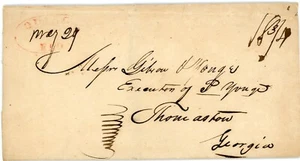 May 29
18 3/4
Messrs Gibson & Yonge
Executor of P Yonge
Thomaston
Georgia